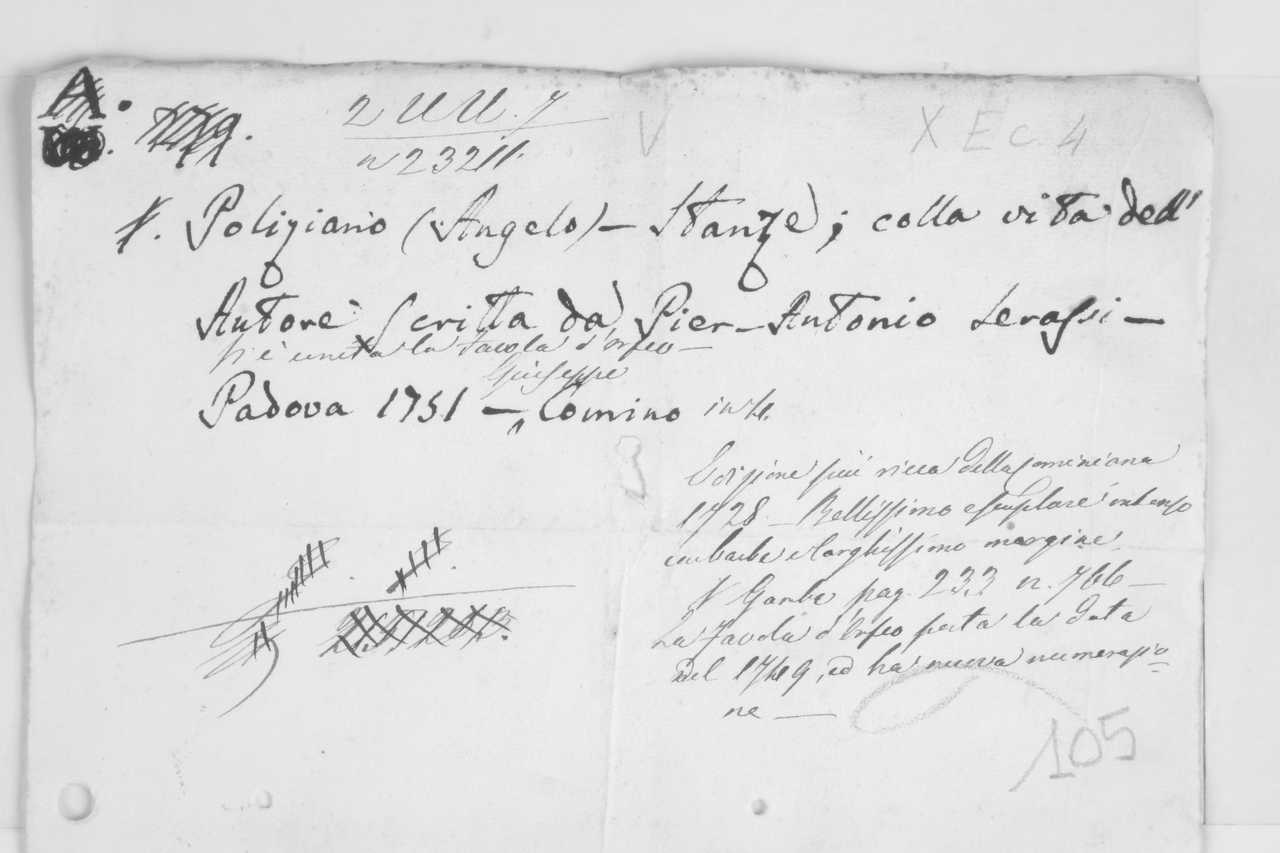 A.
2 UU. 7
n 23211.
V
X E c. 4
Poliziano (Angelo) – Stanze; colla vita dell'
Autore scritta da Pier-Antonio Serassi –
si è unita la Favola d'Orfeo –
Giuseppe
Padova 1751 – Comino in 4.
Edizione più ricca della Cominiana
1728 – Bellissimo esemplare intonso
con barbe e larghissimo margine
V Gamba pag. 233 n. 766 –
La Favola d'Orfeo porta la data
del 1749, ed ha nuova numerazio=
ne —
105